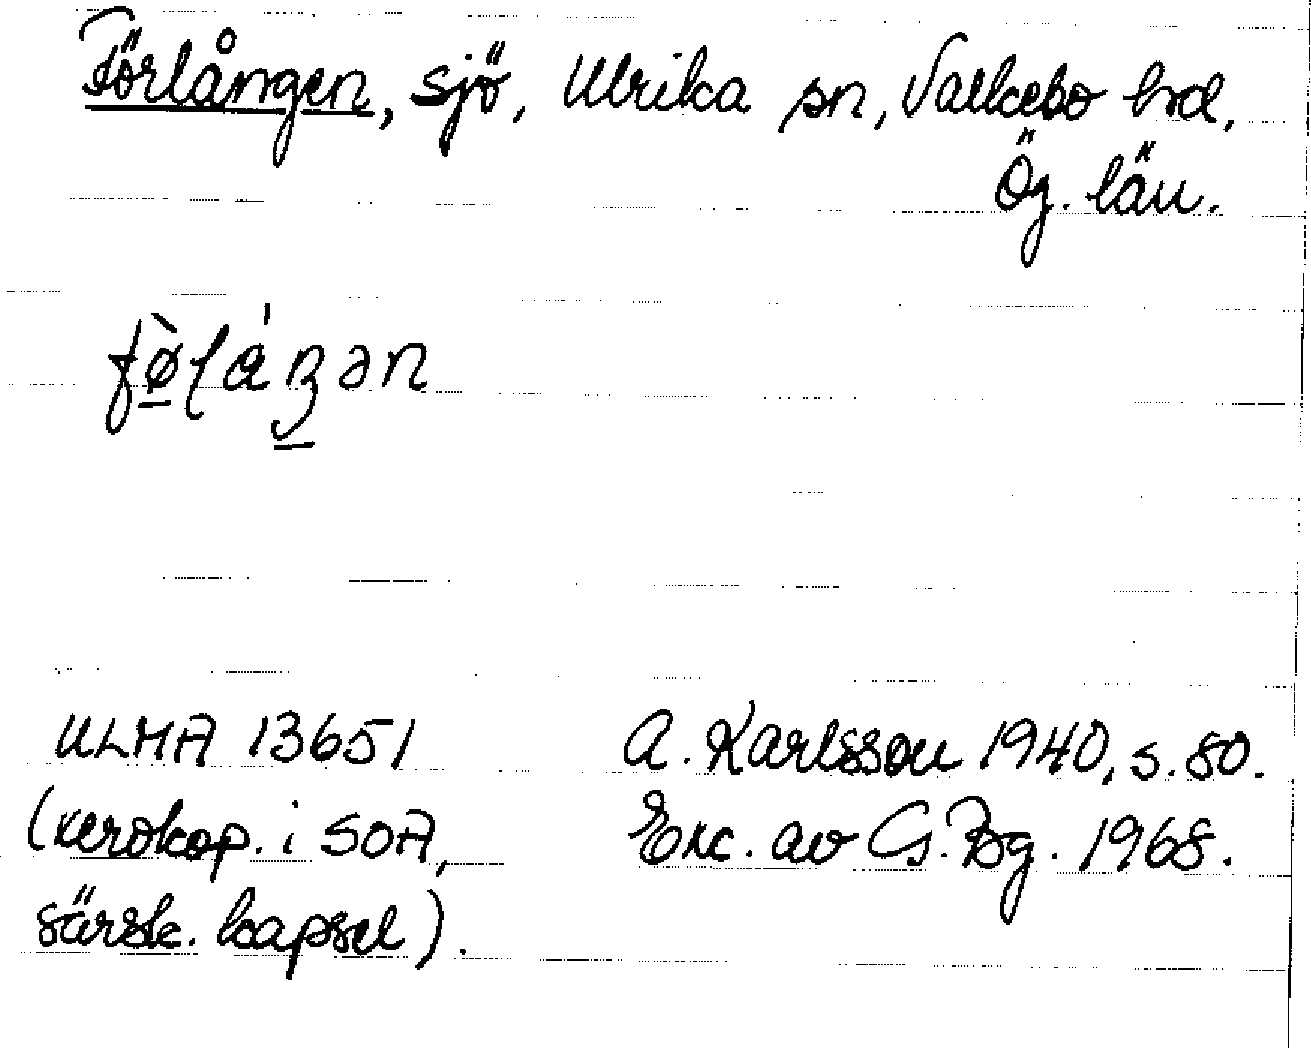 Förlången, sjö, Ulrika sn, Valkebo hd,
Ög. län.
fø̀ḷáŋən
ULMA 13651
(xerokop. i SOA,
särsk. kapsel).
A. Karlsson 1940, s. 80.
Exc. av G. Bg. 1968.